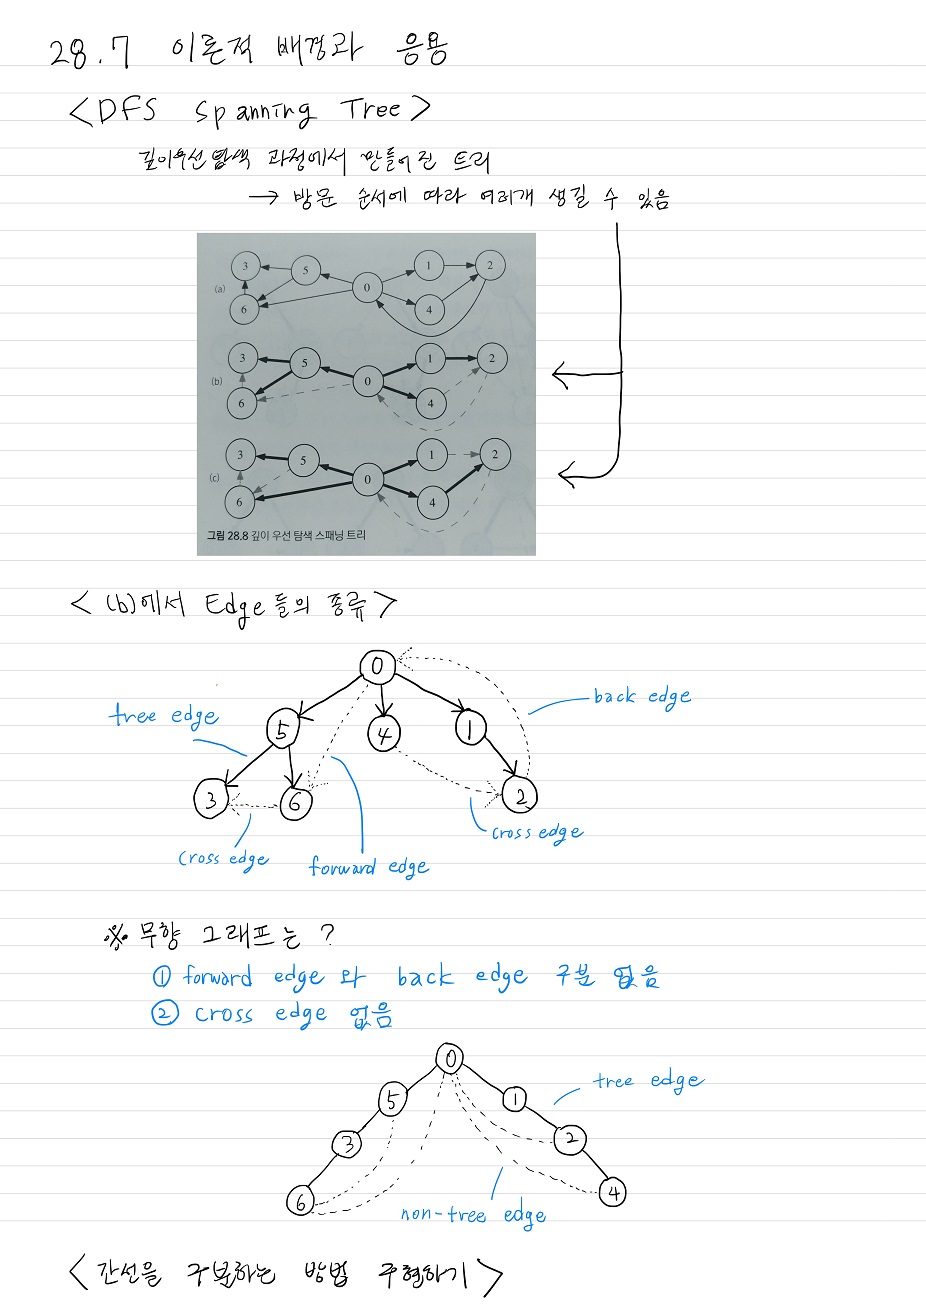 28.7 이론적 배경과 응용
<DFS Spanning Tree>
깊이우선탐색 과정에서 만들어진 트리
→ 방문 순서에 따라 여러개 생길 수 있음
(a)
3 5 0 1 2
6 4
(b)
3 5 0 1 2
6 4
(c)
3 5 0 1 2
6 4
그림 28.8 깊이 우선 탐색 스패닝 트리
< (b)에서 Edge들의 종류>
0
back edge
tree edge
5 4 1
3 6 2
cross edge
cross edge
forward edge
※ 무향 그래프는?
① forward edge와 back edge 구분 없음
② cross edge 없음
0
tree edge
5 1
3 2
6 4
non-tree edge
<간선을 구분하는 방법 구현하기>